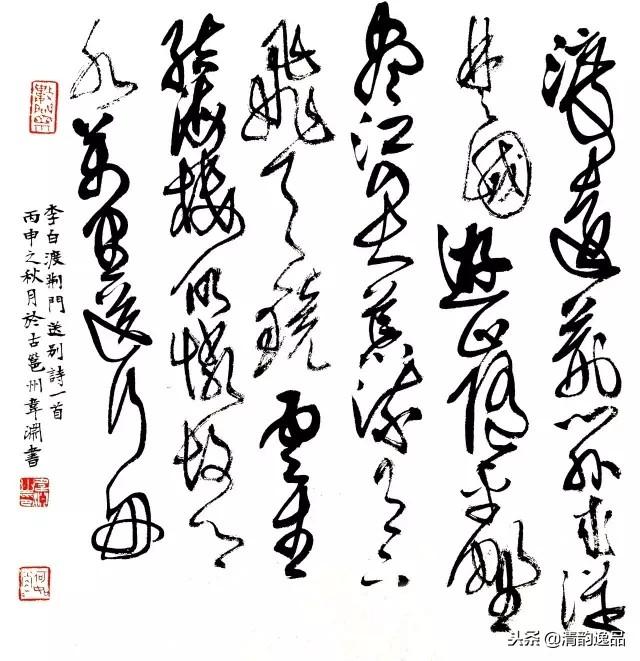 渡遠荊門外來從
楚國遊山隨平野
盡江入大荒流月下
飛天鏡雲生
結海樓仍憐故鄉
水萬里送行舟
李白渡荆門送别詩一首
丙申之秋月於古邕州韋淵書
头条 @清韵逸品